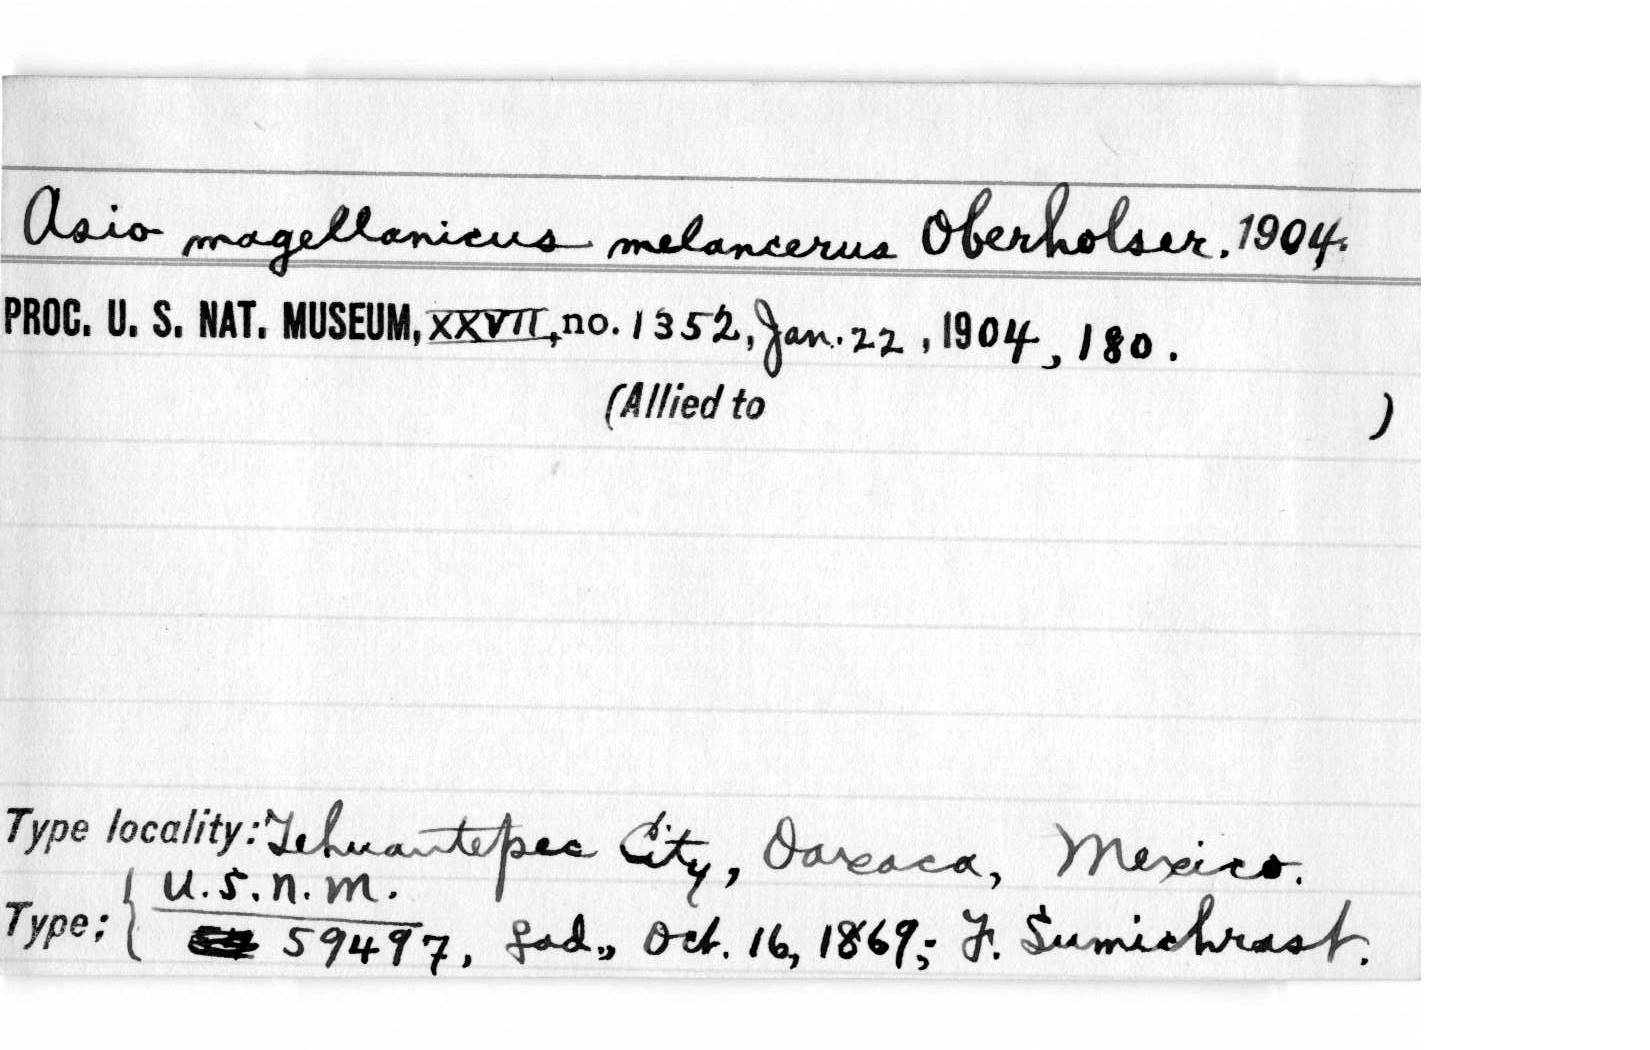 Asio magellanicus melancerus Oberholser. 1904.
PROC. U. S. NAT. MUSEUM, XXVII, no. 1352, Jan. 22, 1904, 180.
(Allied to )
Type locality: Tehuantepec City, Oaxaca, Mexico.
U.S.N.M.
Type: 59497, ad., Oct. 16, 1869; F. Sumichrast.